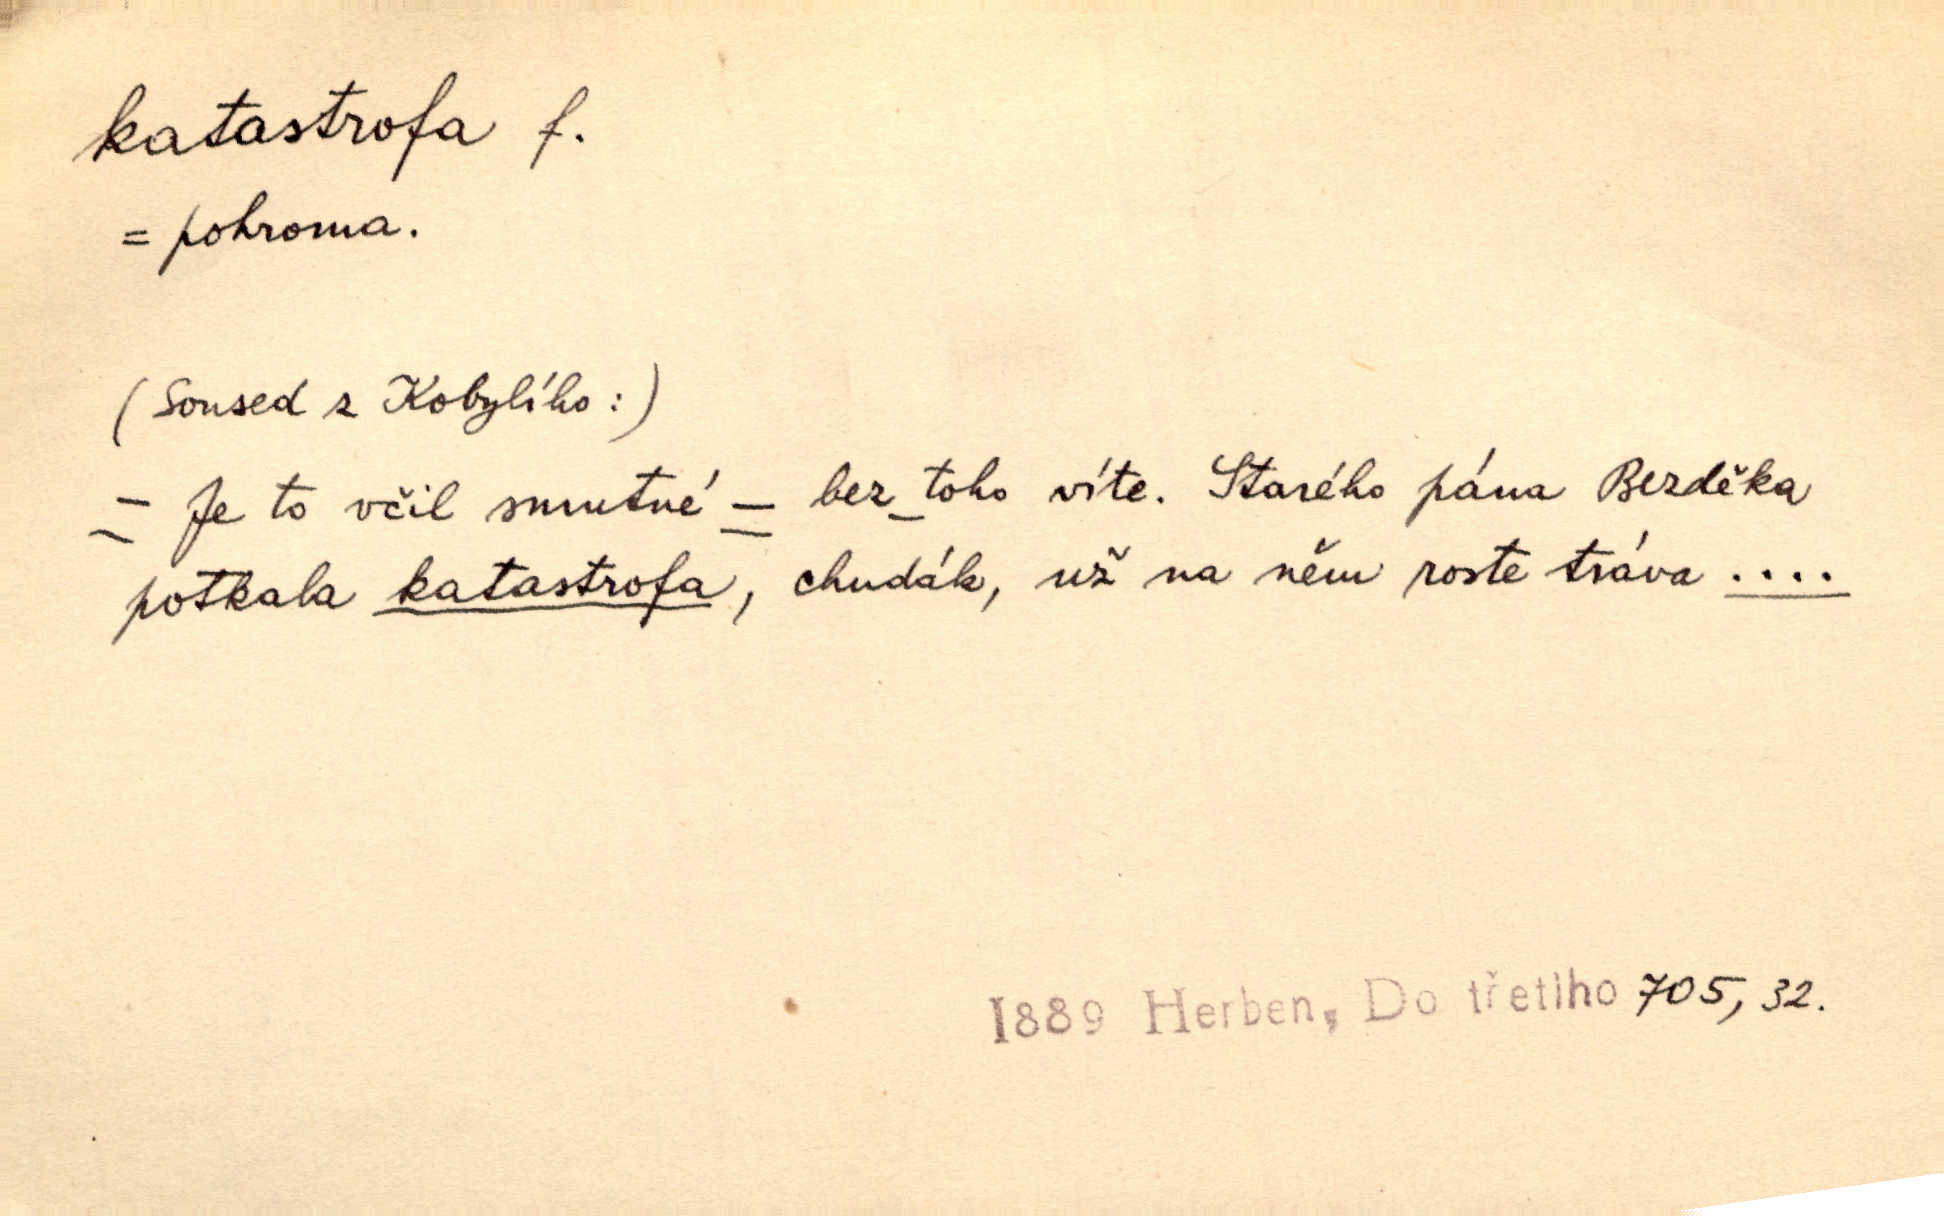 katastrofa f.
= pohroma.
(Soused z Kobylího:)
– Je to včil smutné – bez toho víte. Starého pána Bezděka
potkala katastrofa, chudák, už na něm roste tráva ....
1889 Herben, Do třetího 705, 32.